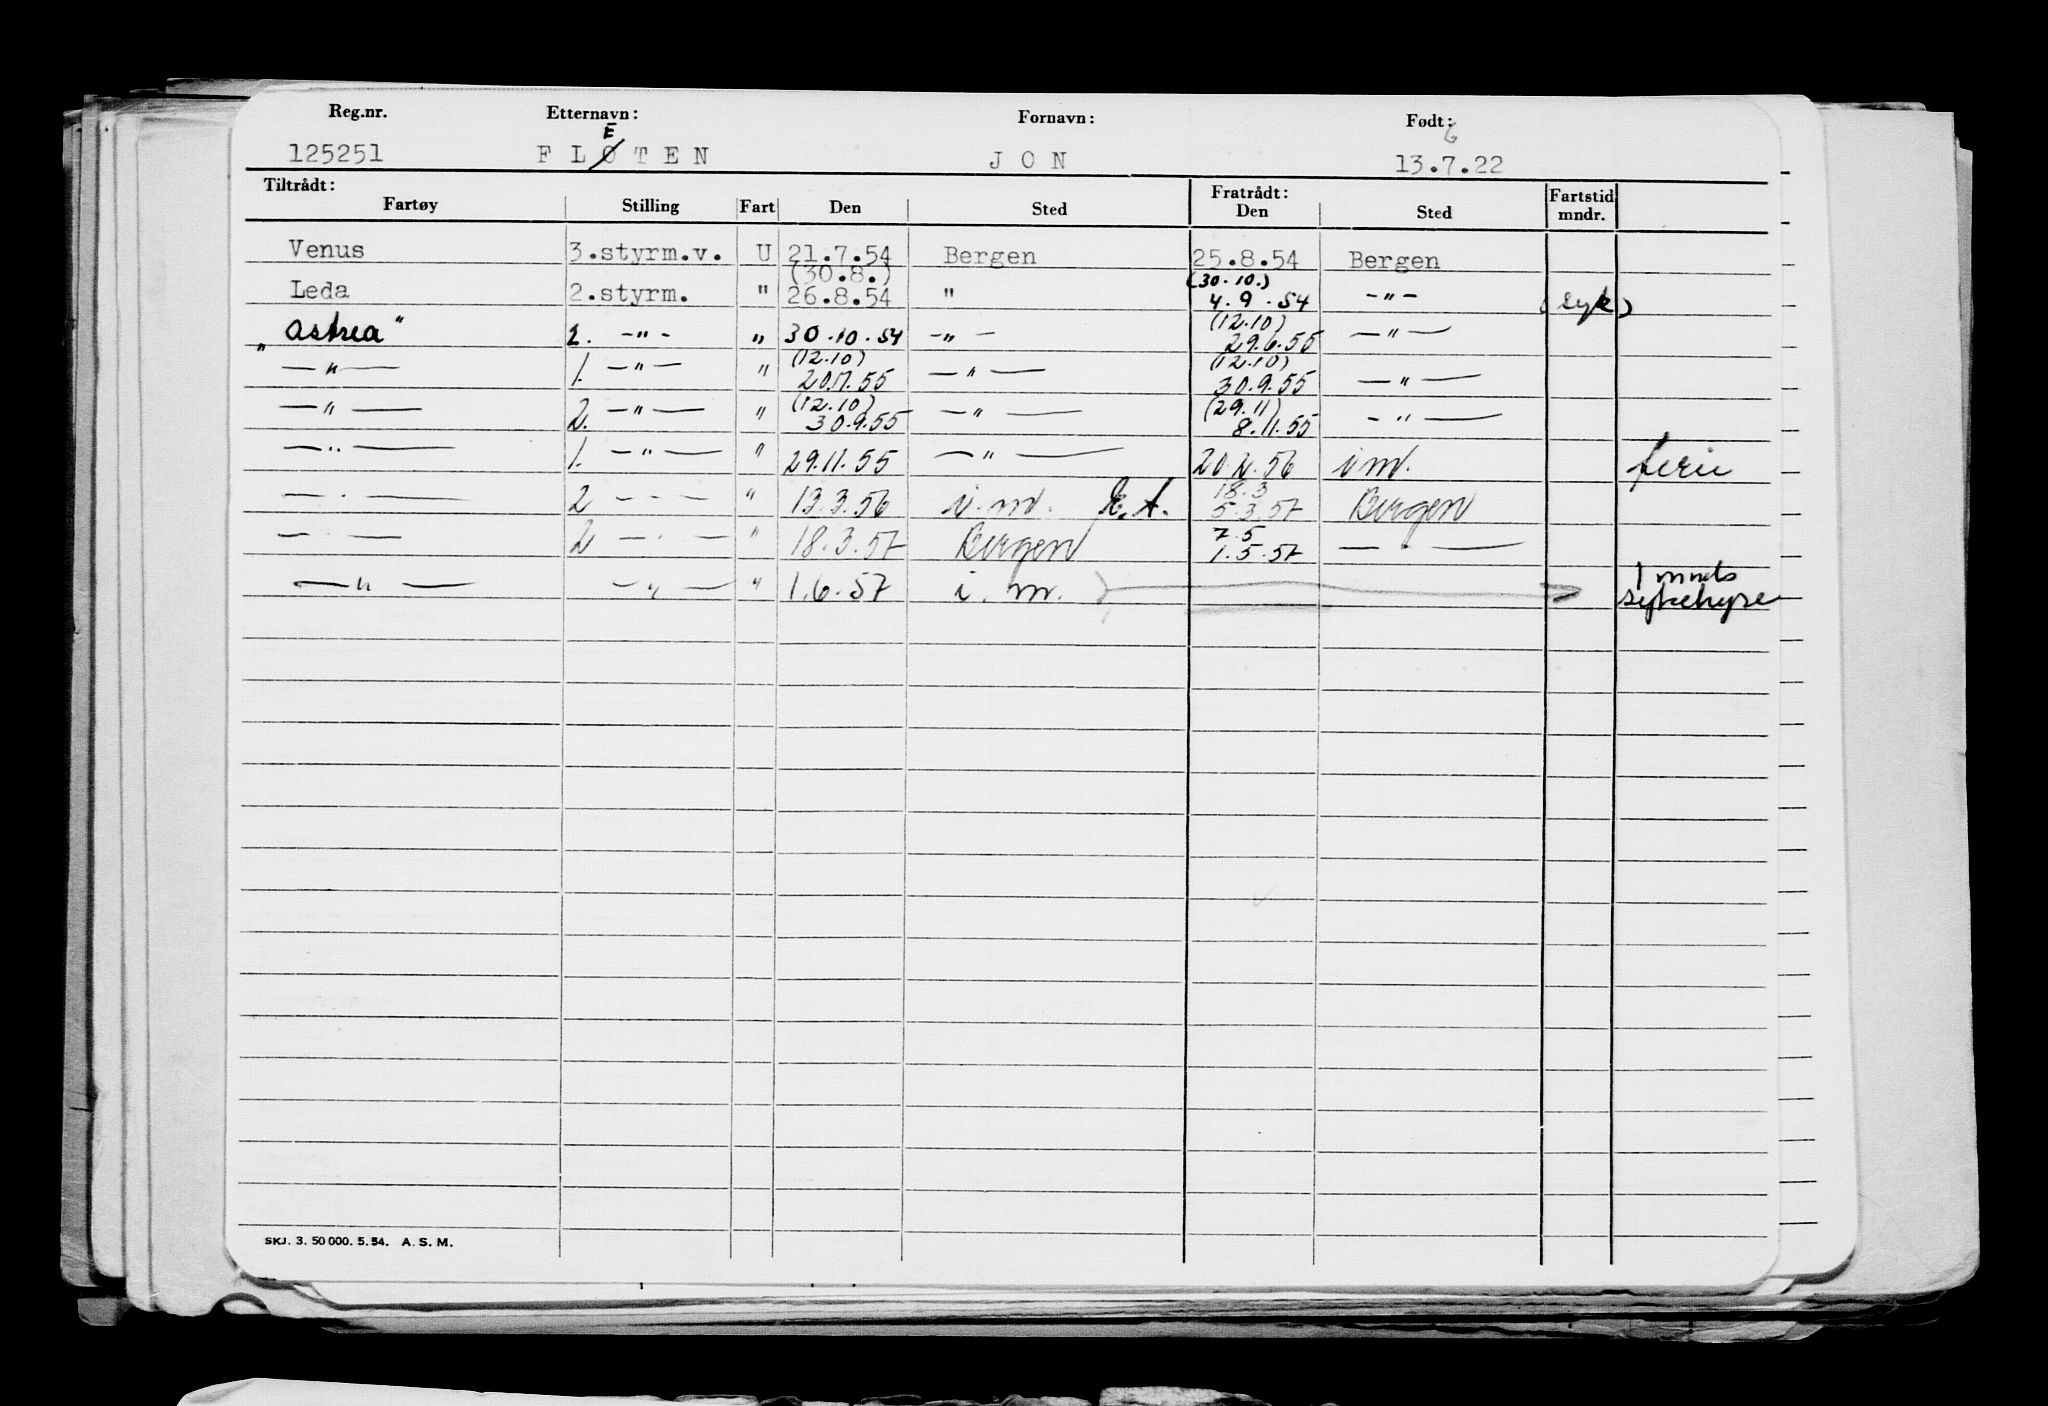 Reg.nr. Etternavn: Fornavn: Født:
E 6
125251 FLØTEN JON 13.7.22
Tiltrådt: Fratrådt: Fartstid
Fartøy Stilling Fart Den Sted Den Sted mndr.
Venus 3.styrm.v. U 21.7.54 Bergen 25.8.54 Bergen
(30.8.) (30.10.)
Leda 2.styrm. " 26.8.54 " 4.9.54 -"- (syk)
(12.10)
"Astrea" 2. -"- " 30.10.54 -"- 29.6.55 -"-
(12.10) (12.10)
-"- 1. -"- " 20.7.55 -"- 30.9.55 -"-
(12.10) (29.11)
-"- 2. -"- " 30.9.55 -"- 8.11.55 -"-
-"- 1. -"- " 29.11.55 -"- 20.2.56 i m. ferie
18.3
-"- 2 -"- " 13.3.56 i.m. 5.3.57 Bergen
7.5
-"- 2 -"- " 18.3.57 Bergen 1.5.57 -"-
-"- -"- " 1.6.57 i.m. 1 mnds
sykehyre
SKJ. 3. 50 000. 5.54. A. S. M.